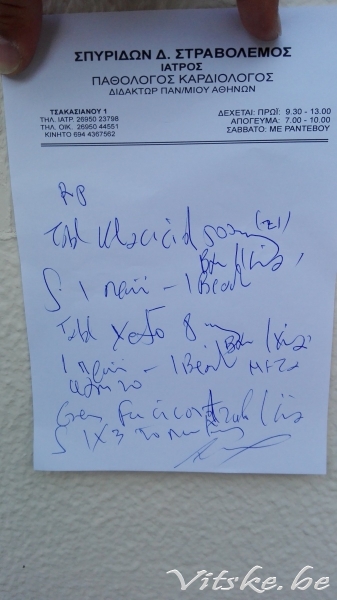 ΣΠΥΡΙΔΩΝ Δ. ΣΤΡΑΒΟΛΕΜΟΣ
ΙΑΤΡΟΣ
ΠΑΘΟΛΟΓΟΣ ΚΑΡΔΙΟΛΟΓΟΣ
ΔΙΔΑΚΤΩΡ ΠΑΝ/ΜΙΟΥ ΑΘΗΝΩΝ
ΤΣΑΚΑΣΙΑΝΟΥ 1
ΤΗΛ. ΙΑΤΡ. 26950 23798
ΤΗΛ. ΟΙΚ. 26950 44551
ΚΙΝΗΤΟ 694 4367562
ΔΕΧΕΤΑΙ: ΠΡΩΪ: 9.30 - 13.00
ΑΠΟΓΕΥΜΑ: 7.00 - 10.00
ΣΑΒΒΑΤΟ: ΜΕ ΡΑΝΤΕΒΟΥ
Rp
Tabl Klaricid 500mg
S 1 πρωί - 1 βράδ
Tabl Xefo 8 mg
1 πρωί - 1 βράδ μετά
Crem Fucicort
S 1X3
Vitske.be